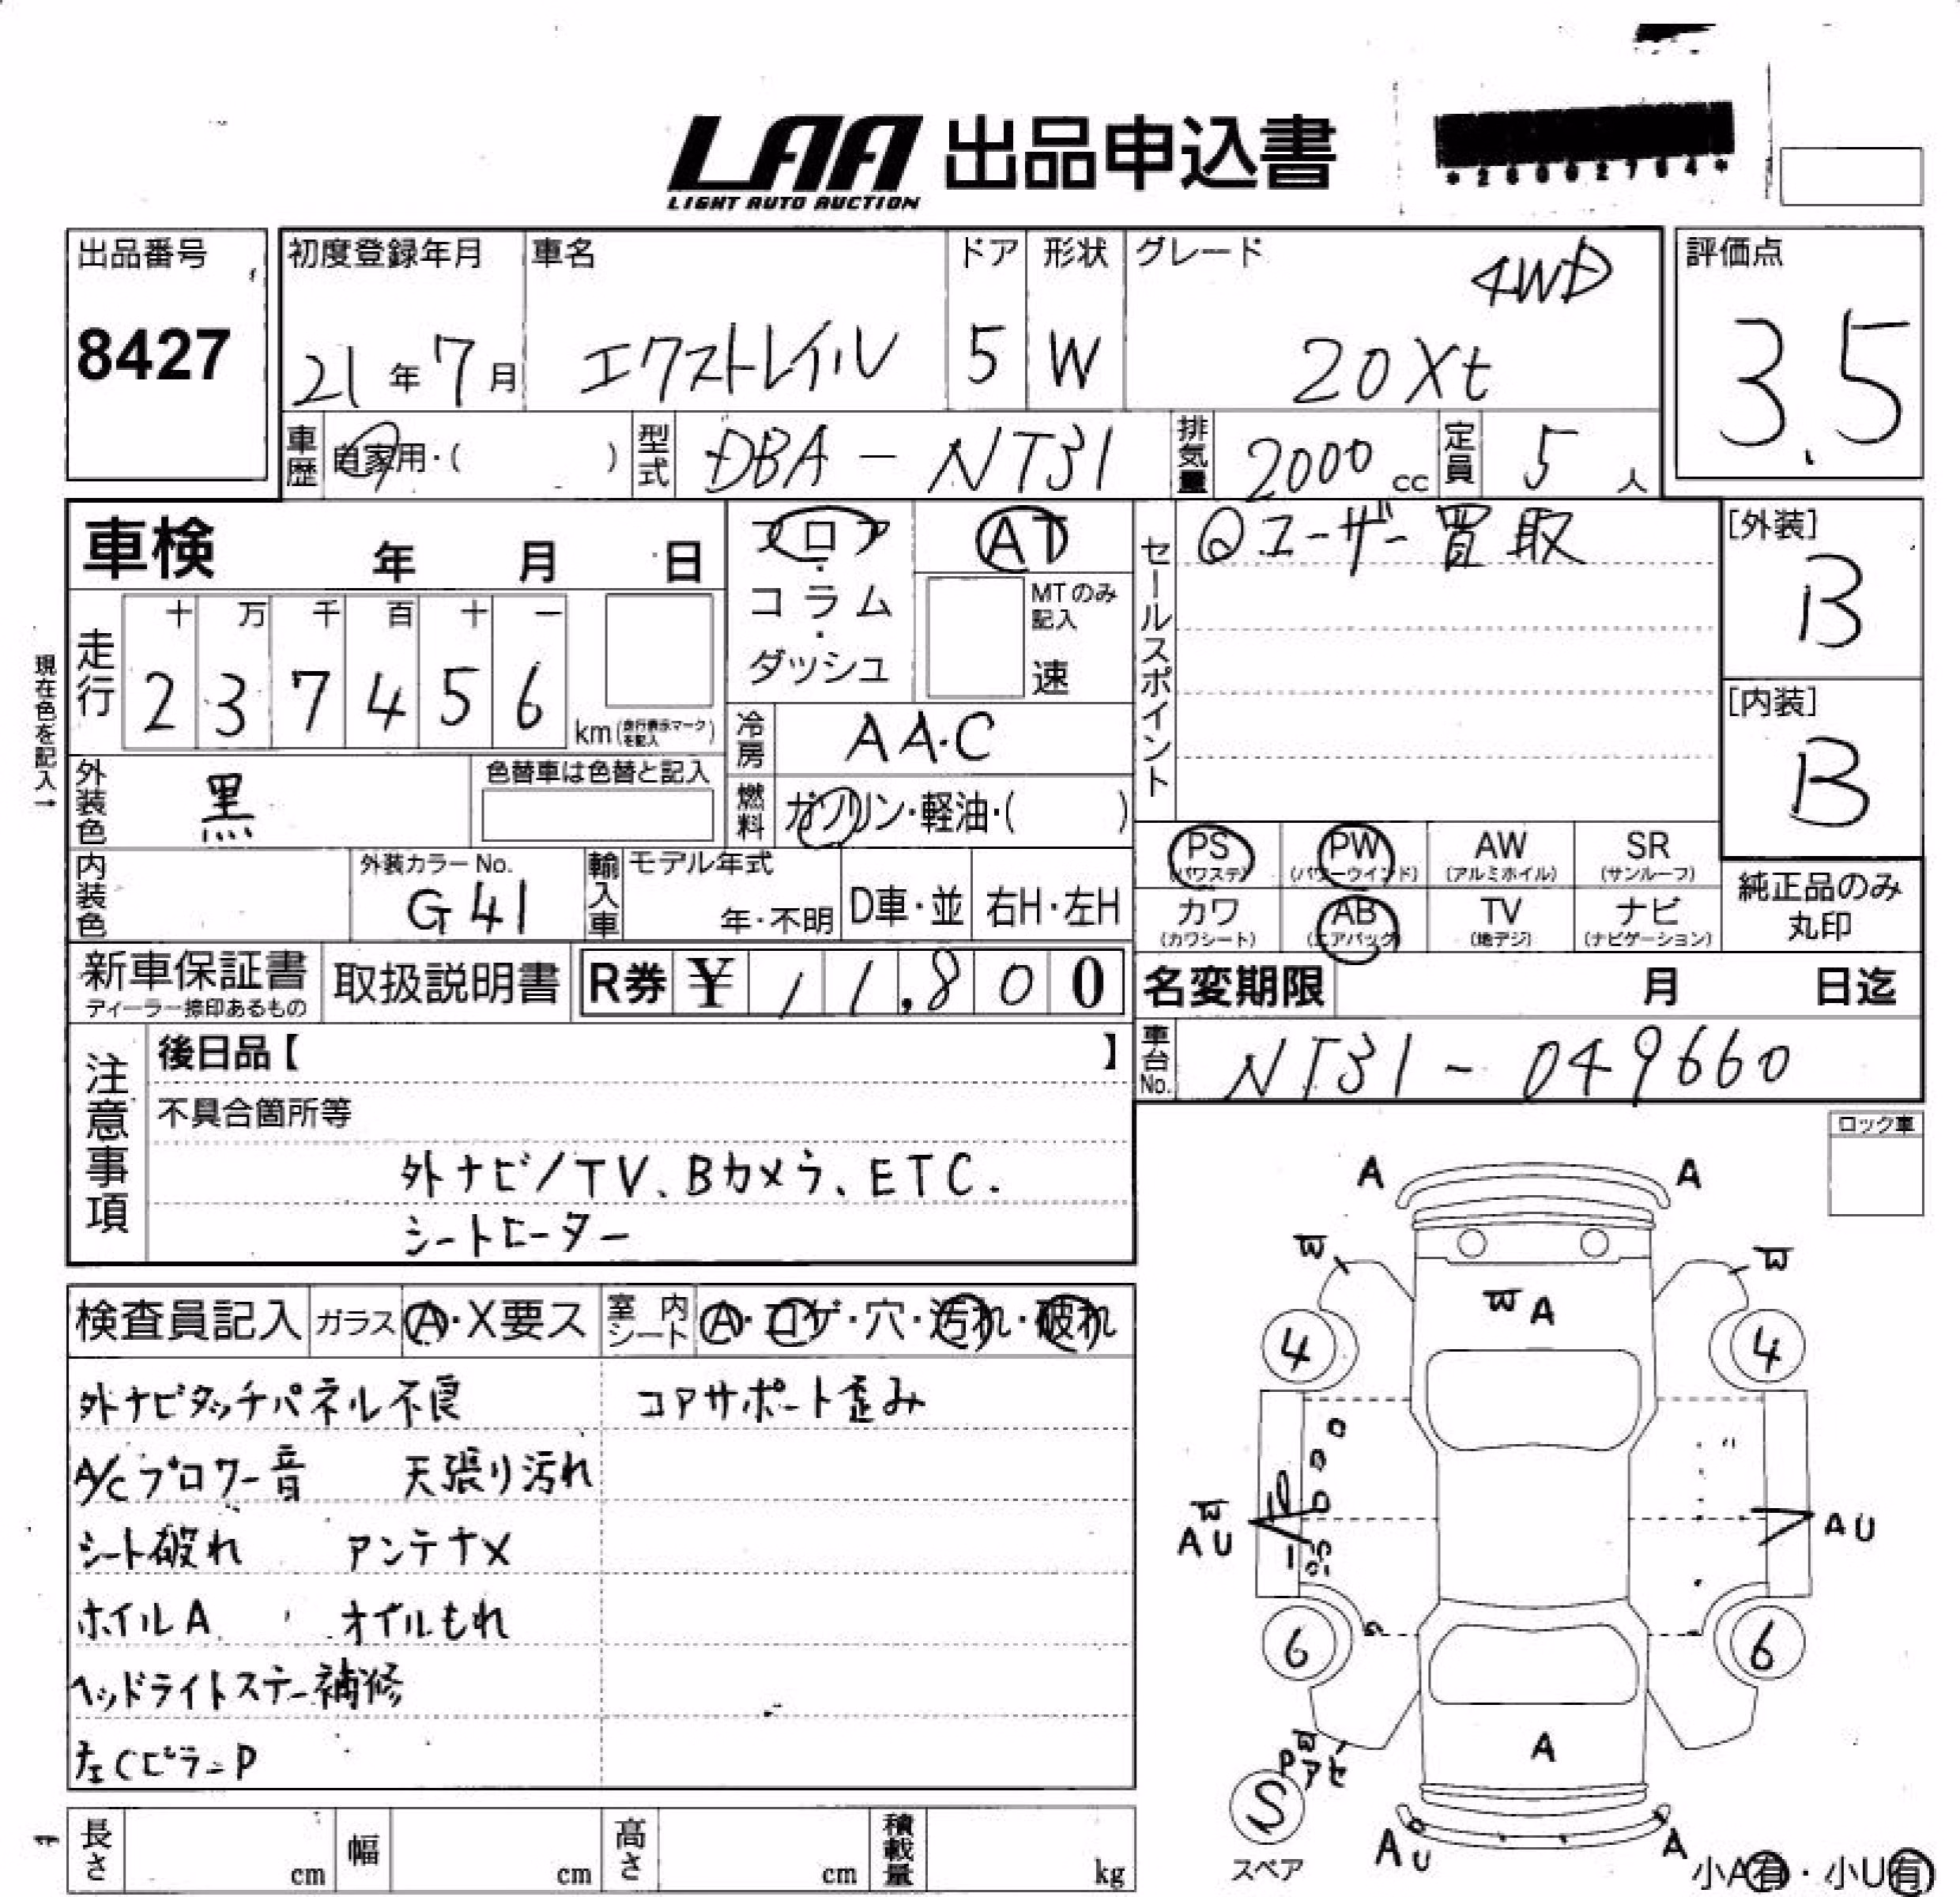 LAA 出品申込書
LIGHT AUTO AUCTION
出品番号
8427
初度登録年月
21年7月
車名
エクストレイル
ドア
5
形状
W
グレード
4WD
20Xt
評価点
3.5
車歴
自家用・( )
型式
DBA - NT31
排気量
2000 cc
定員
5 人
車検 年 月 日
フロア
・
コラム
・
ダッシュ
AT
MTのみ
記入
速
セールスポイント
Qユーザー買取
[外装]
B
[内装]
B
現在色を記入→
走行
十 万 千 百 十 一
2 3 7 4 5 6 km(走行表示マークを記入)
冷房
AA.C
外装色
黒
色替車は色替と記入
燃料
ガソリン・軽油・( )
内装色
外装カラーNo.
G41
輸入車
モデル年式
年・不明
D車・並
右H・左H
PS
(パワステ)
PW
(パワーウインド)
AW
(アルミホイル)
SR
(サンルーフ)
カワ
(カワシート)
AB
(エアバッグ)
TV
(地デジ)
ナビ
(ナビゲーション)
純正品のみ
丸印
新車保証書
ディーラー捺印あるもの
取扱説明書
R券 ¥ 11,800
名変期限 月 日迄
車台No.
NT31 - 049660
注意事項
後日品【 】
不具合箇所等
外ナビ/TV、Bカメラ、ETC.
シートヒーター
ロック車
検査員記入
ガラス
A・X要ス
室内シート
A・コゲ・穴・汚れ・破れ
外ナビタッチパネル不良 コアサポート歪み
A/Cブロワー音 天張り汚れ
シート破れ アンテナX
ホイルA オイルもれ
ヘッドライトステー補修
左CピラーP
A A
W W
W A
4 4
W
A U
A U
6 6
W
P アセ
A
S
スペア
A U
A
小A有・小U有
長さ cm
幅 cm
高さ cm
積載量 kg